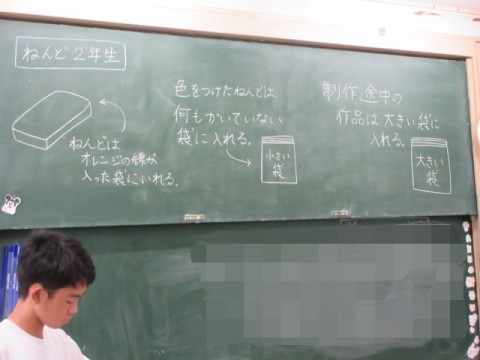 ねんど2年生
ねんどは
オレンジの線が
入った袋にいれる。
色をつけたねんどは
何もかいていない
袋に入れる。
小さい
袋
制作途中の
作品は大きい袋に
入れる。
大きい
袋